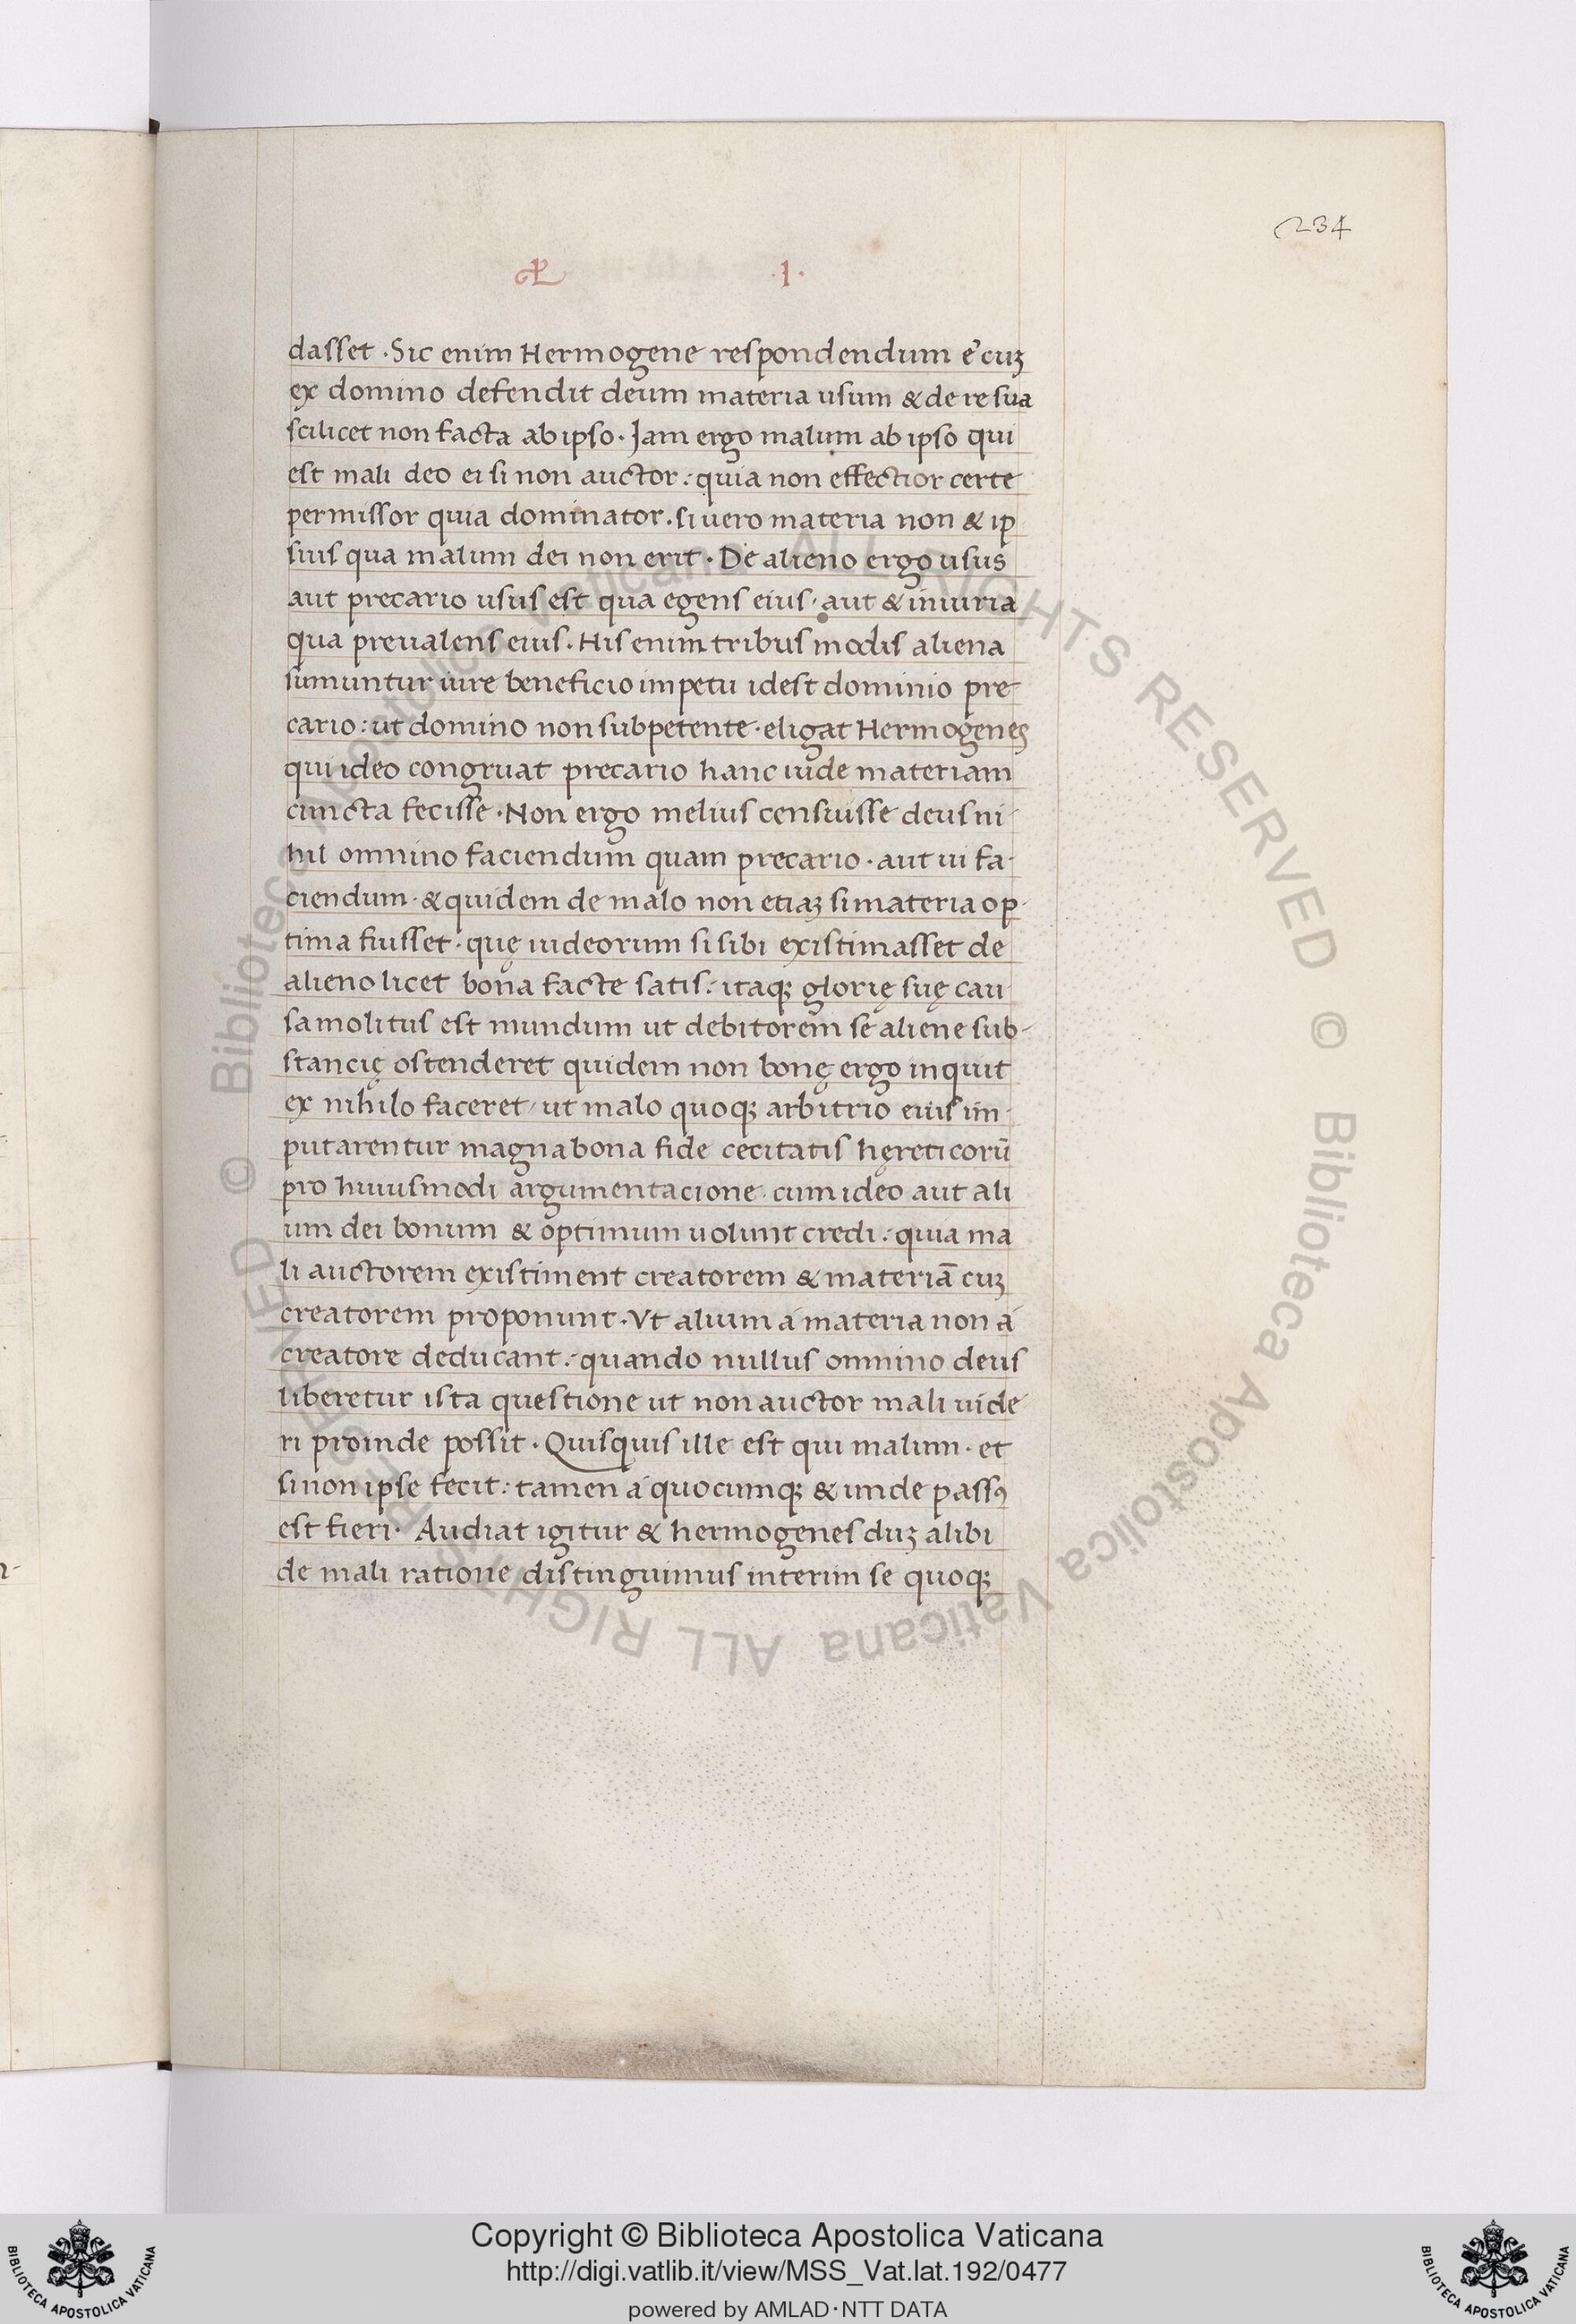 234
·I·
dasset · Sic enim Hermogene respondendum ē cuꝫ
ex domino defendit deum materia usum & de re sua
scilicet non facta ab ipso · Jam ergo malum ab ipso qui
est mali deo ei si non auctor : quia non effectior certe
permissor quia dominator . si uero materia non & ip
sius qua malum dei non erit · De alieno ergo usus
aut precario usus est qua egens eius · aut & iniuria
qua preualens eius . His enim tribus modis aliena
sumuntur iure beneficio impetu idest dominio pre-
cario : ut domino non subpetente · eligat Hermogenes
qui ideo congruat precario hanc iude materiam
cuncta fecisse · Non ergo melius censuisse deus ni-
hil omnino faciendum quam precario · aut ui fa-
ciendum · & quidem de malo non etiaꝫ si materia op-
tima fuisset · quę iudeorum si sibi existimasset de
alieno licet bona facte satis : itaqꝫ glorię suę cau
sa molitus est mundum ut debitorem se aliene sub-
stancię ostenderet quidem non bonę ergo inquit
ex nihilo faceret / ut malo quoqꝫ arbitrio eius im-
putarentur magna bona fide cecitatis hęreticorū
pro huiusmodi argumentacione · cum ideo aut ali
um dei bonum & optimum uolunt credi : quia ma
li auctorem existiment creatorem & materiā cuꝫ
creatorem proponunt · Vt alium á materia non á
creatore deducant : quando nullus omnino deus
liberetur ista questione ut non auctor mali uide-
ri proinde possit · Quisquis ille est qui malum · et
si non ipse fecit : tamen á quocumqꝫ & unde passꝰ
est fieri · Audiat igitur & hermogenes duꝫ alibi
de mali ratione distinguimus interim se quoqꝫ
© Biblioteca Apostolica Vaticana ALL RIGHTS RESERVED © Biblioteca Apostolica Vaticana ALL RIGHTS RESERVED
Copyright © Biblioteca Apostolica Vaticana
http://digi.vatlib.it/view/MSS_Vat.lat.192/0477
powered by AMLAD·NTT DATA
BIBLIOTECA APOSTOLICA VATICANA
BIBLIOTECA APOSTOLICA VATICANA